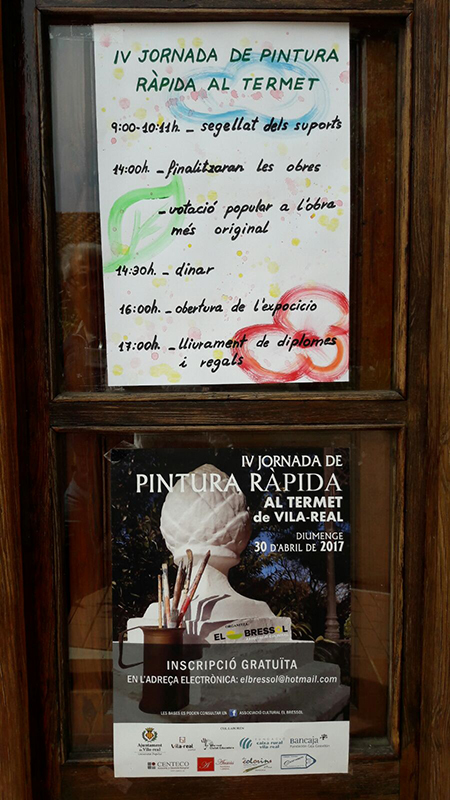 IV JORNADA DE PINTURA
RÀPIDA AL TERMET
9:00-10:11h. _ segellat dels suports
14:00h. _ finalitzaran les obres
_ votació popular a l'obra
més original
14:30h. _ dinar
16:00h. _ obertura de l'expocició
17:00h. _ lliurament de diplomes
i regals
IV JORNADA DE
PINTURA RÀPIDA
AL TERMET
de VILA-REAL
DIUMENGE
30 D'ABRIL DE 2017
EL BRESSOL
INSCRIPCIÓ GRATUÏTA
EN L'ADREÇA ELECTRÒNICA: elbressol@hotmail.com
LES BASES ES PODEN CONSULTAR EN f ASSOCIACIÓ CULTURAL EL BRESSOL
COL·LABOREN:
Ajuntament de Vila-real
Vila-real
caixa rural vila-real
bancaja
CENTECO
colorins